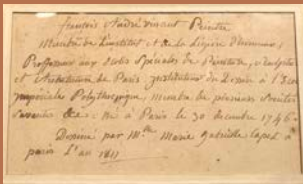 françois André vincent Peintre
Membre de L'institut et de la Légion d'honneur,
Professeur aux Ecoles Spéciales de Peinture, Sculpture
et Architecture de Paris, Instituteur du Dessin à l'Ecole
impériale Polytechnique, membre de plusieurs Sociétés
savantes &c. né à Paris le 30 decembre 1746.
Dessiné par Mlle Marie Gabrielle Capet à
paris L'an 1811